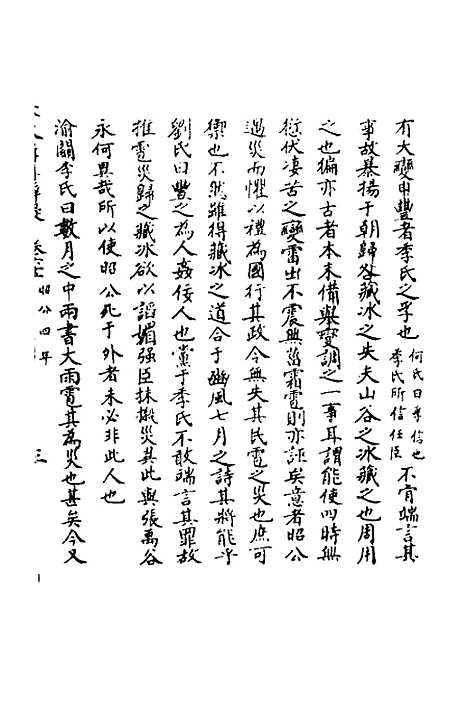 有大變申豐者季氏之孚也何氏曰孚信也季氏所信任臣不肯端言其
事故暴揚于朝歸咎藏冰之失夫山谷之冰藏之也周用
之也徧亦古者本末備與變調之一事耳謂能使四時無
愆伏凄苦之變雷出不震無菑霜雹則亦誣矣意者昭公
遇災而懼以禮為國行其政令無失其民雹之災也庶可
禦也不然雖得藏冰之道合于豳風七月之詩其將能乎
劉氏曰豐之為人姦佞人也黨于季氏不敢端言其罪故
推雹災歸之藏冰欲以諂媚强臣抹摋災異此與張禹谷
永何異哉所以使昭公死于外者未必非此人也
渝關李氏曰數月之中兩書大雨雹其為災也甚矣今又
昭公四年
三